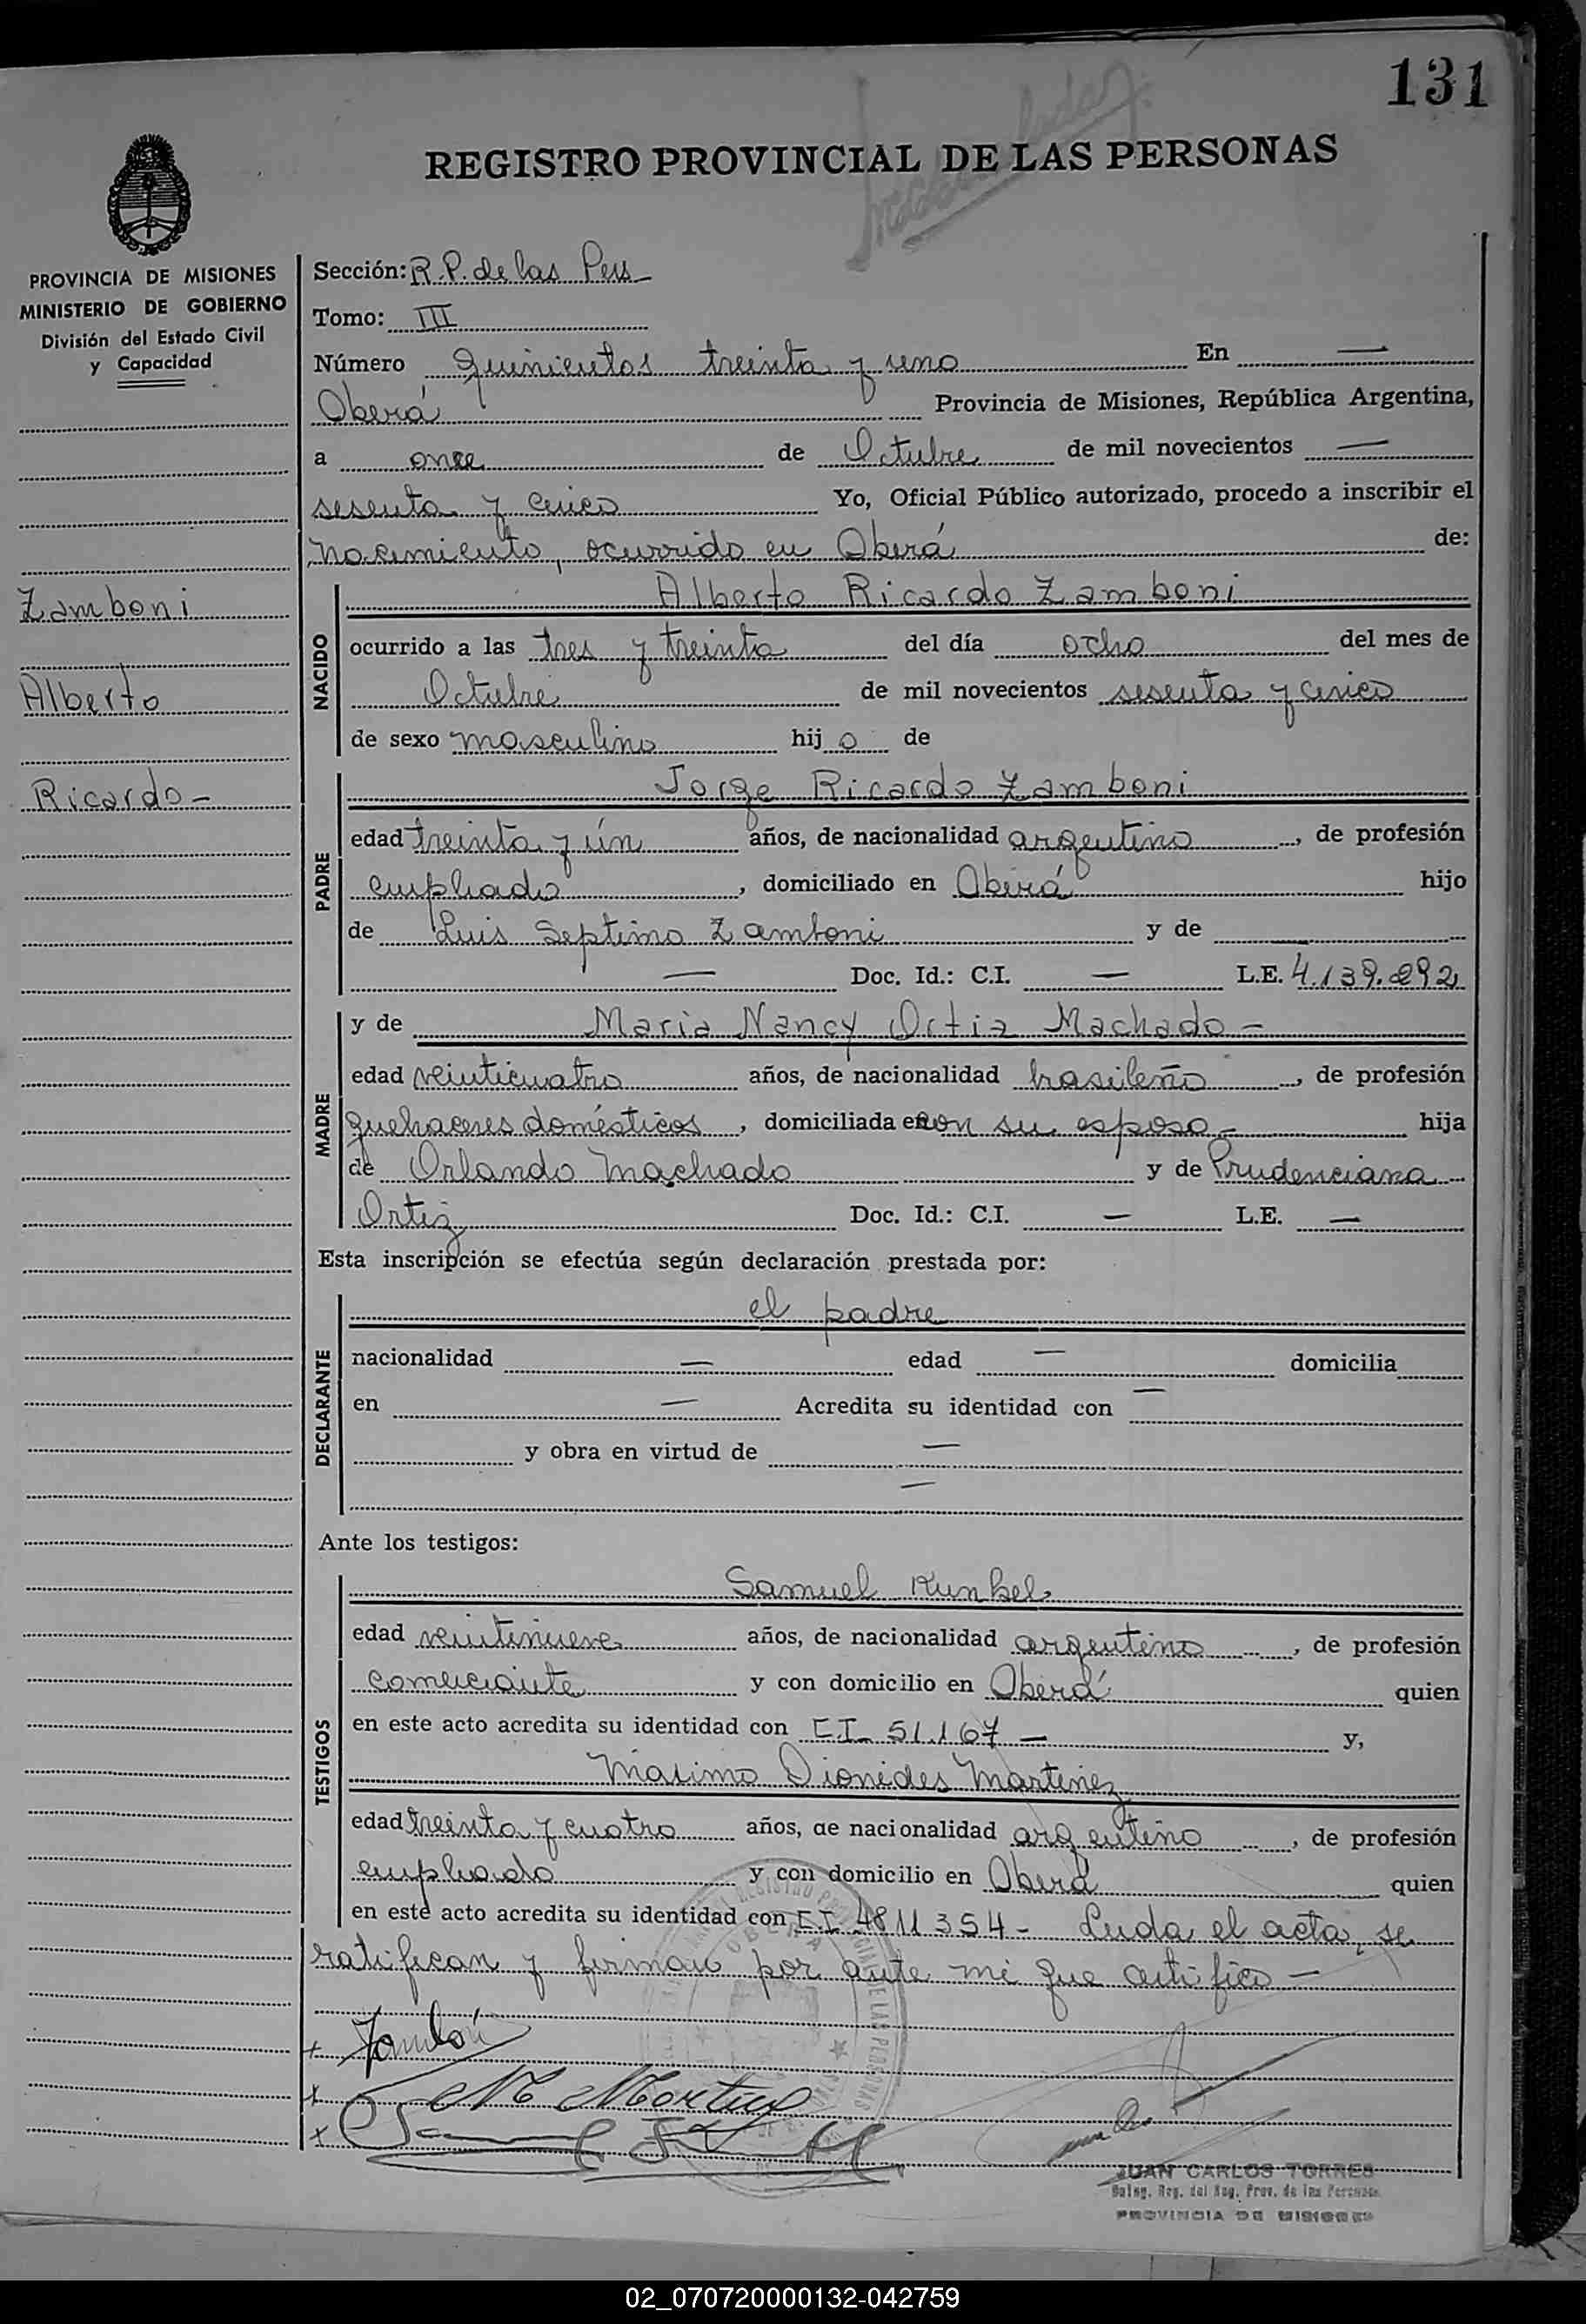 131
REGISTRO PROVINCIAL DE LAS PERSONAS
PROVINCIA DE MISIONES
MINISTERIO DE GOBIERNO
División del Estado Civil
y Capacidad
Zamboni
Alberto
Ricardo -
Sección: R.P. de las Pers
Tomo: III
Número quinientos treinta y uno En —
Oberá Provincia de Misiones, República Argentina,
a once de Octubre de mil novecientos —
sesenta y cinco Yo, Oficial Público autorizado, procedo a inscribir el
nacimiento, ocurrido en Oberá de:
NACIDO
Alberto Ricardo Zamboni
ocurrido a las tres y treinta del día ocho del mes de
Octubre de mil novecientos sesenta y cinco
de sexo masculino hij o de
PADRE
Jorge Ricardo Zamboni
edad treinta y ún años, de nacionalidad argentino, de profesión
empleado, domiciliado en Oberá hijo
de Luis Septimo Zamboni y de —
— Doc. Id.: C.I. — L.E. 4.139.292
MADRE
y de Maria Nancy Ortiz Machado -
edad veinticuatro años, de nacionalidad brasileña, de profesión
quehaceres domésticos, domiciliada en con su esposo - hija
de Orlando Machado y de Prudenciana
Ortiz Doc. Id.: C.I. — L.E. —
Esta inscripción se efectúa según declaración prestada por:
DECLARANTE
el padre
nacionalidad — edad — domicilia
en — Acredita su identidad con —
y obra en virtud de —
—
Ante los testigos:
TESTIGOS
Samuel Kunkel
edad veintinueve años, de nacionalidad argentino, de profesión
comerciante y con domicilio en Oberá quien
en este acto acredita su identidad con C.I. 51.167 — y,
Maximo Dionides Martinez
edad treinta y cuatro años, de nacionalidad argentino, de profesión
empleado y con domicilio en Oberá quien
en este acto acredita su identidad con C.I. 4811354 - Leida el acta, se
ratifican y firman por ante mi que certifico —
JUAN CARLOS TORRES
PROVINCIA DE MISIONES
02_070720000132-042759